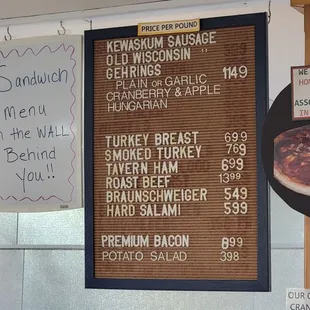 PRICE PER POUND
KEWASKUM SAUSAGE
OLD WISCONSIN "
GEHRINGS 1149
PLAIN OR GARLIC
CRANBERRY & APPLE
HUNGARIAN
TURKEY BREAST 699
SMOKED TURKEY 769
TAVERN HAM 699
ROAST BEEF 1399
BRAUNSCHWEIGER 549
HARD SALAMI 599
PREMIUM BACON 899
POTATO SALAD 398
Sandwich
Menu
n the WALL
Behind
you!!
WE
HO
ASSO
IN
OUR C
CRAN